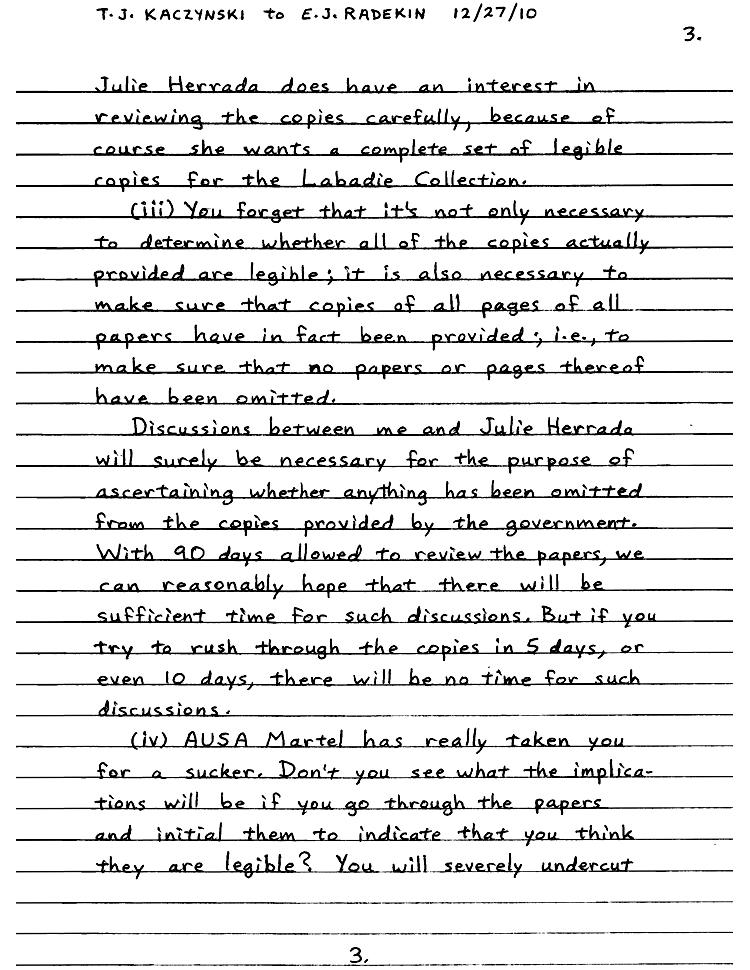 T. J. KACZYNSKI to E. J. RADEKIN 12/27/10
3.
Julie Herrada does have an interest in
reviewing the copies carefully, because of
course she wants a complete set of legible
copies for the Labadie Collection.
(iii) You forget that it's not only necessary
to determine whether all of the copies actually
provided are legible; it is also necessary to
make sure that copies of all pages of all
papers have in fact been provided; i.e., to
make sure that no papers or pages thereof
have been omitted.
Discussions between me and Julie Herrada
will surely be necessary for the purpose of
ascertaining whether anything has been omitted
from the copies provided by the government.
With 90 days allowed to review the papers, we
can reasonably hope that there will be
sufficient time for such discussions. But if you
try to rush through the copies in 5 days, or
even 10 days, there will be no time for such
discussions.
(iv) AUSA Martel has really taken you
for a sucker. Don't you see what the implica-
tions will be if you go through the papers
and initial them to indicate that you think
they are legible? You will severely undercut
3.